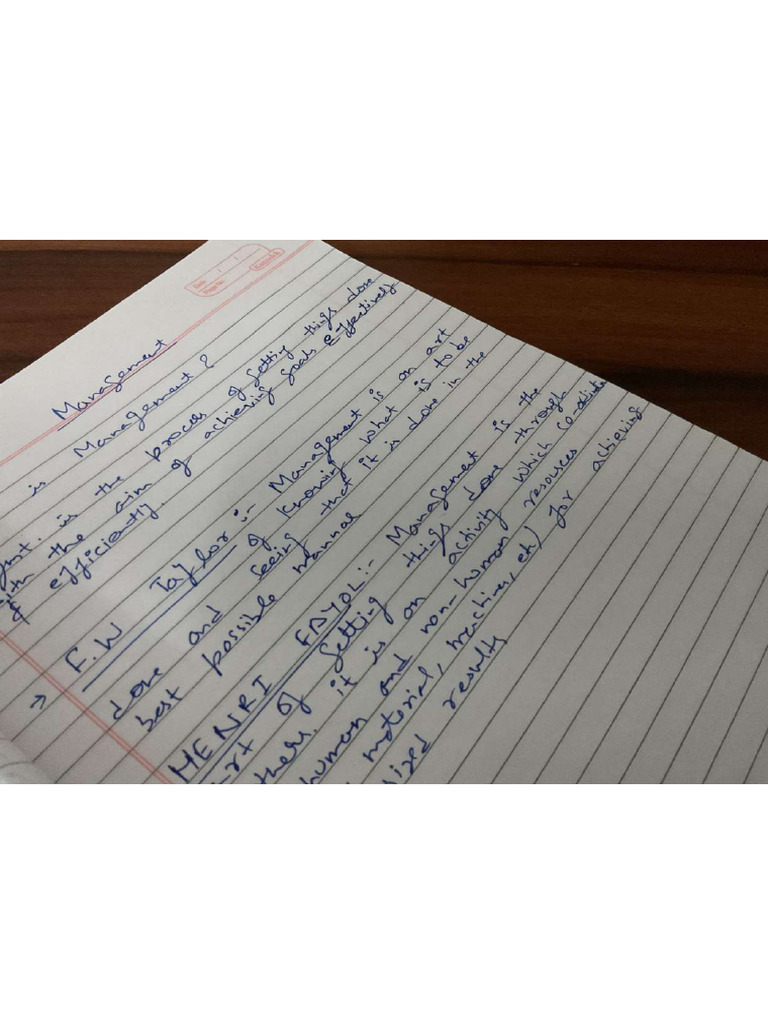 Date / /
Page No.
Management
is Management?
Mgmt. is the process of getting things done
with the aim of achieving goals effectively
& efficiently.
→ F.W Taylor :- Management is an art
of knowing what is to be
done and seeing that it is done in the
best possible mannar
HENRI FAYOL:- Management is the
Art of getting things done through
others. it is an activity which co-ordinate
human and non-human resources
material, machines, etc) for achieving
results